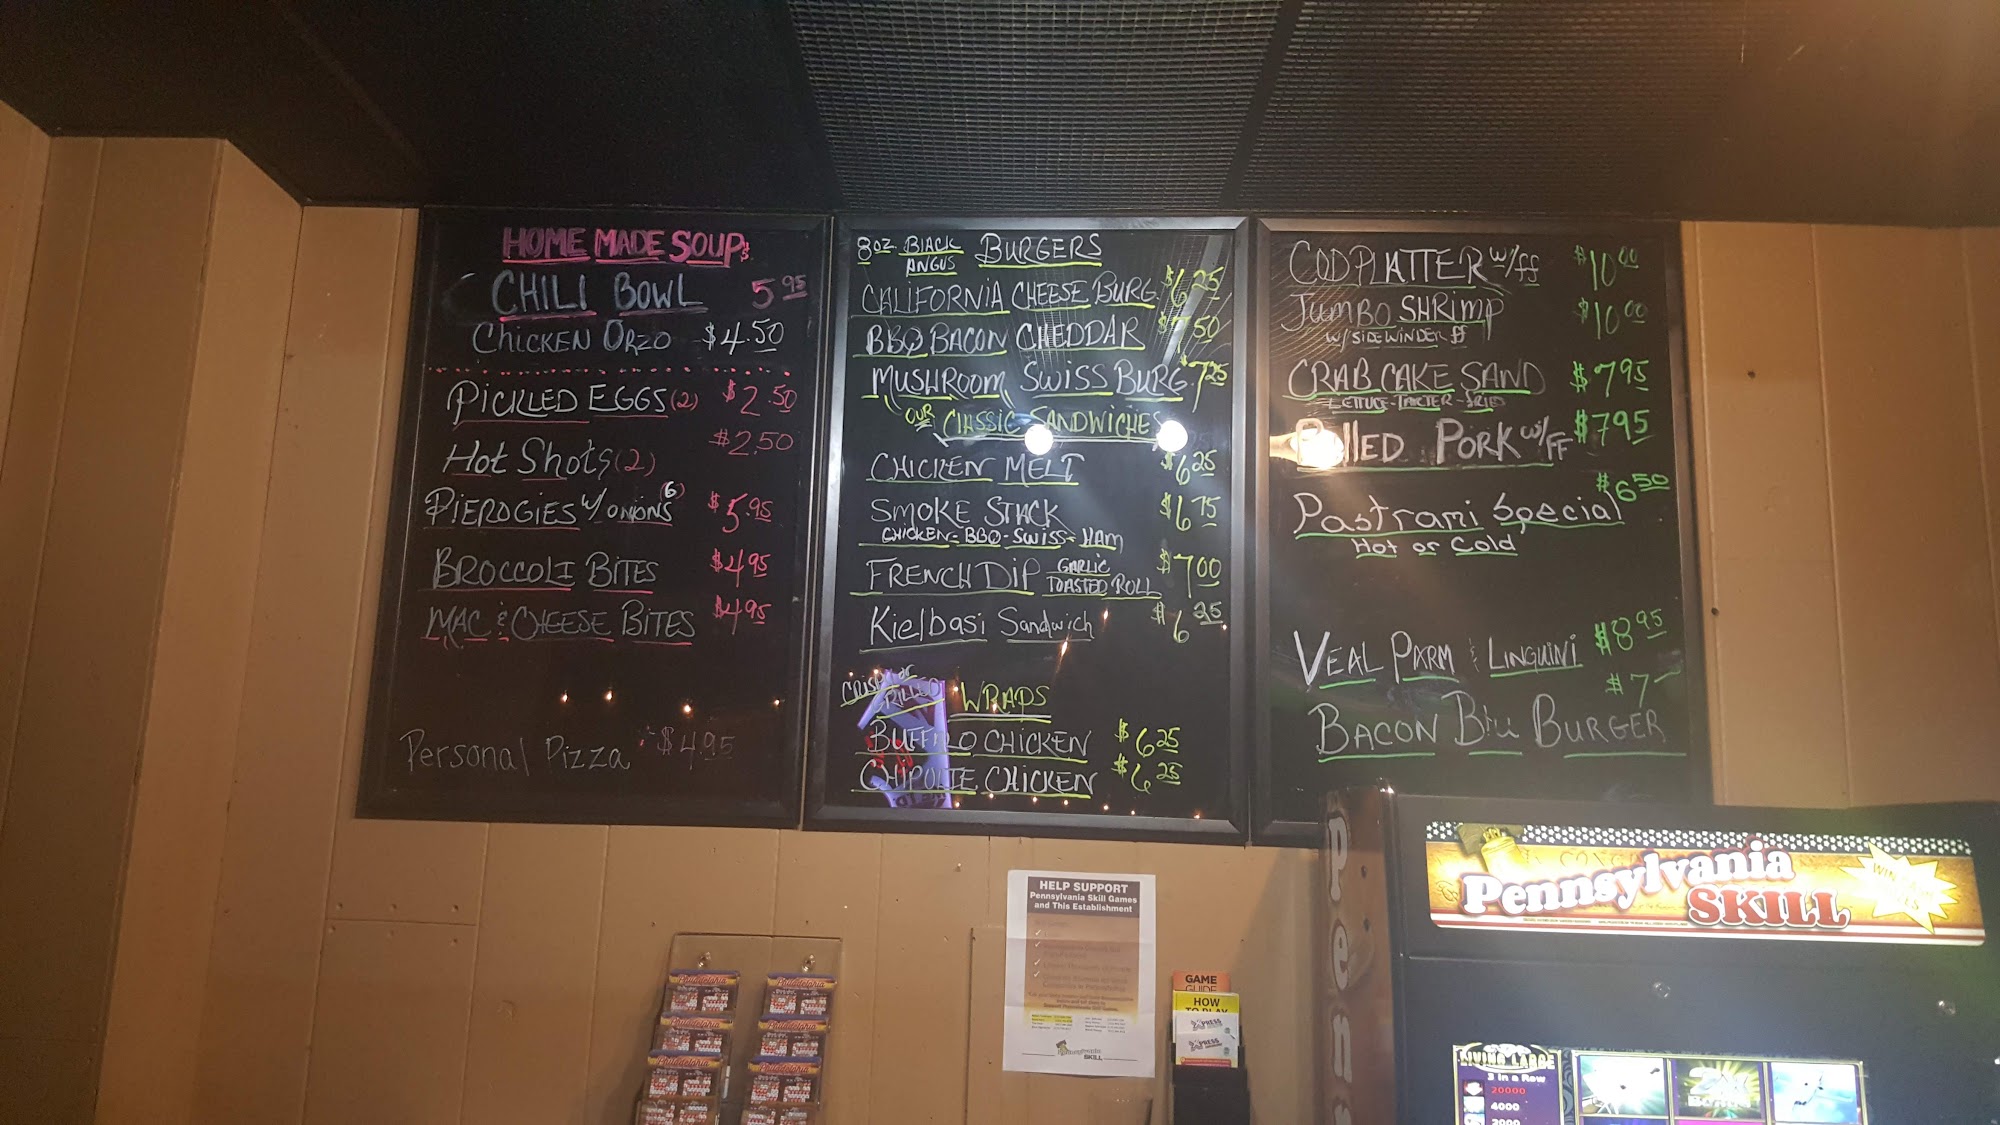 HOME MADE SOUPS
CHILI BOWL 5.95
CHICKEN ORZO $4.50
PICKLED EGGS (2) $2.50
Hot Shots (2) $2.50
PIEROGIES W/ONIONS (6) $5.95
BROCCOLI BITES $4.95
MAC & CHEESE BITES $4.95
Personal Pizza $4.95
8oz. BLACK ANGUS BURGERS
CALIFORNIA CHEESE BURG. $6.25
BBQ BACON CHEDDAR $7.50
MUSHROOM SWISS BURG. $7.25
OUR CLASSIC SANDWICHES
CHICKEN MELT $6.25
SMOKE STACK $6.75
CHICKEN-BBQ-SWISS-HAM
FRENCH DIP GARLIC TOASTED ROLL $7.00
Kielbasi Sandwich $6.25
CRISPY or GRILLED WRAPS
BUFFALO CHICKEN $6.25
CHIPOLTE CHICKEN $6.25
COD PLATTER w/ff $10.00
JUMBO SHRIMP $10.00
W/SIDEWINDER ff
CRAB CAKE SAND $7.95
LETTUCE-TARTER-FRIED
Pulled PORK w/FF $7.95
Pastrami Special $6.50
Hot or Cold
VEAL PARM & LINGUINI $8.95
BACON Bleu BURGER $7-
HELP SUPPORT
Pennsylvania Skill Games
and This Establishment
Pennsylvania
SKILL
GAME
GUIDE
HOW
TO PLAY
XPRESS
XPRESS
Philadelphia
Philadelphia
Philadelphia
Philadelphia
Philadelphia
Philadelphia
Penn
Pennsylvania
SKILL
LIVING LARGE
3 in a Row
20000
4000
BONUS